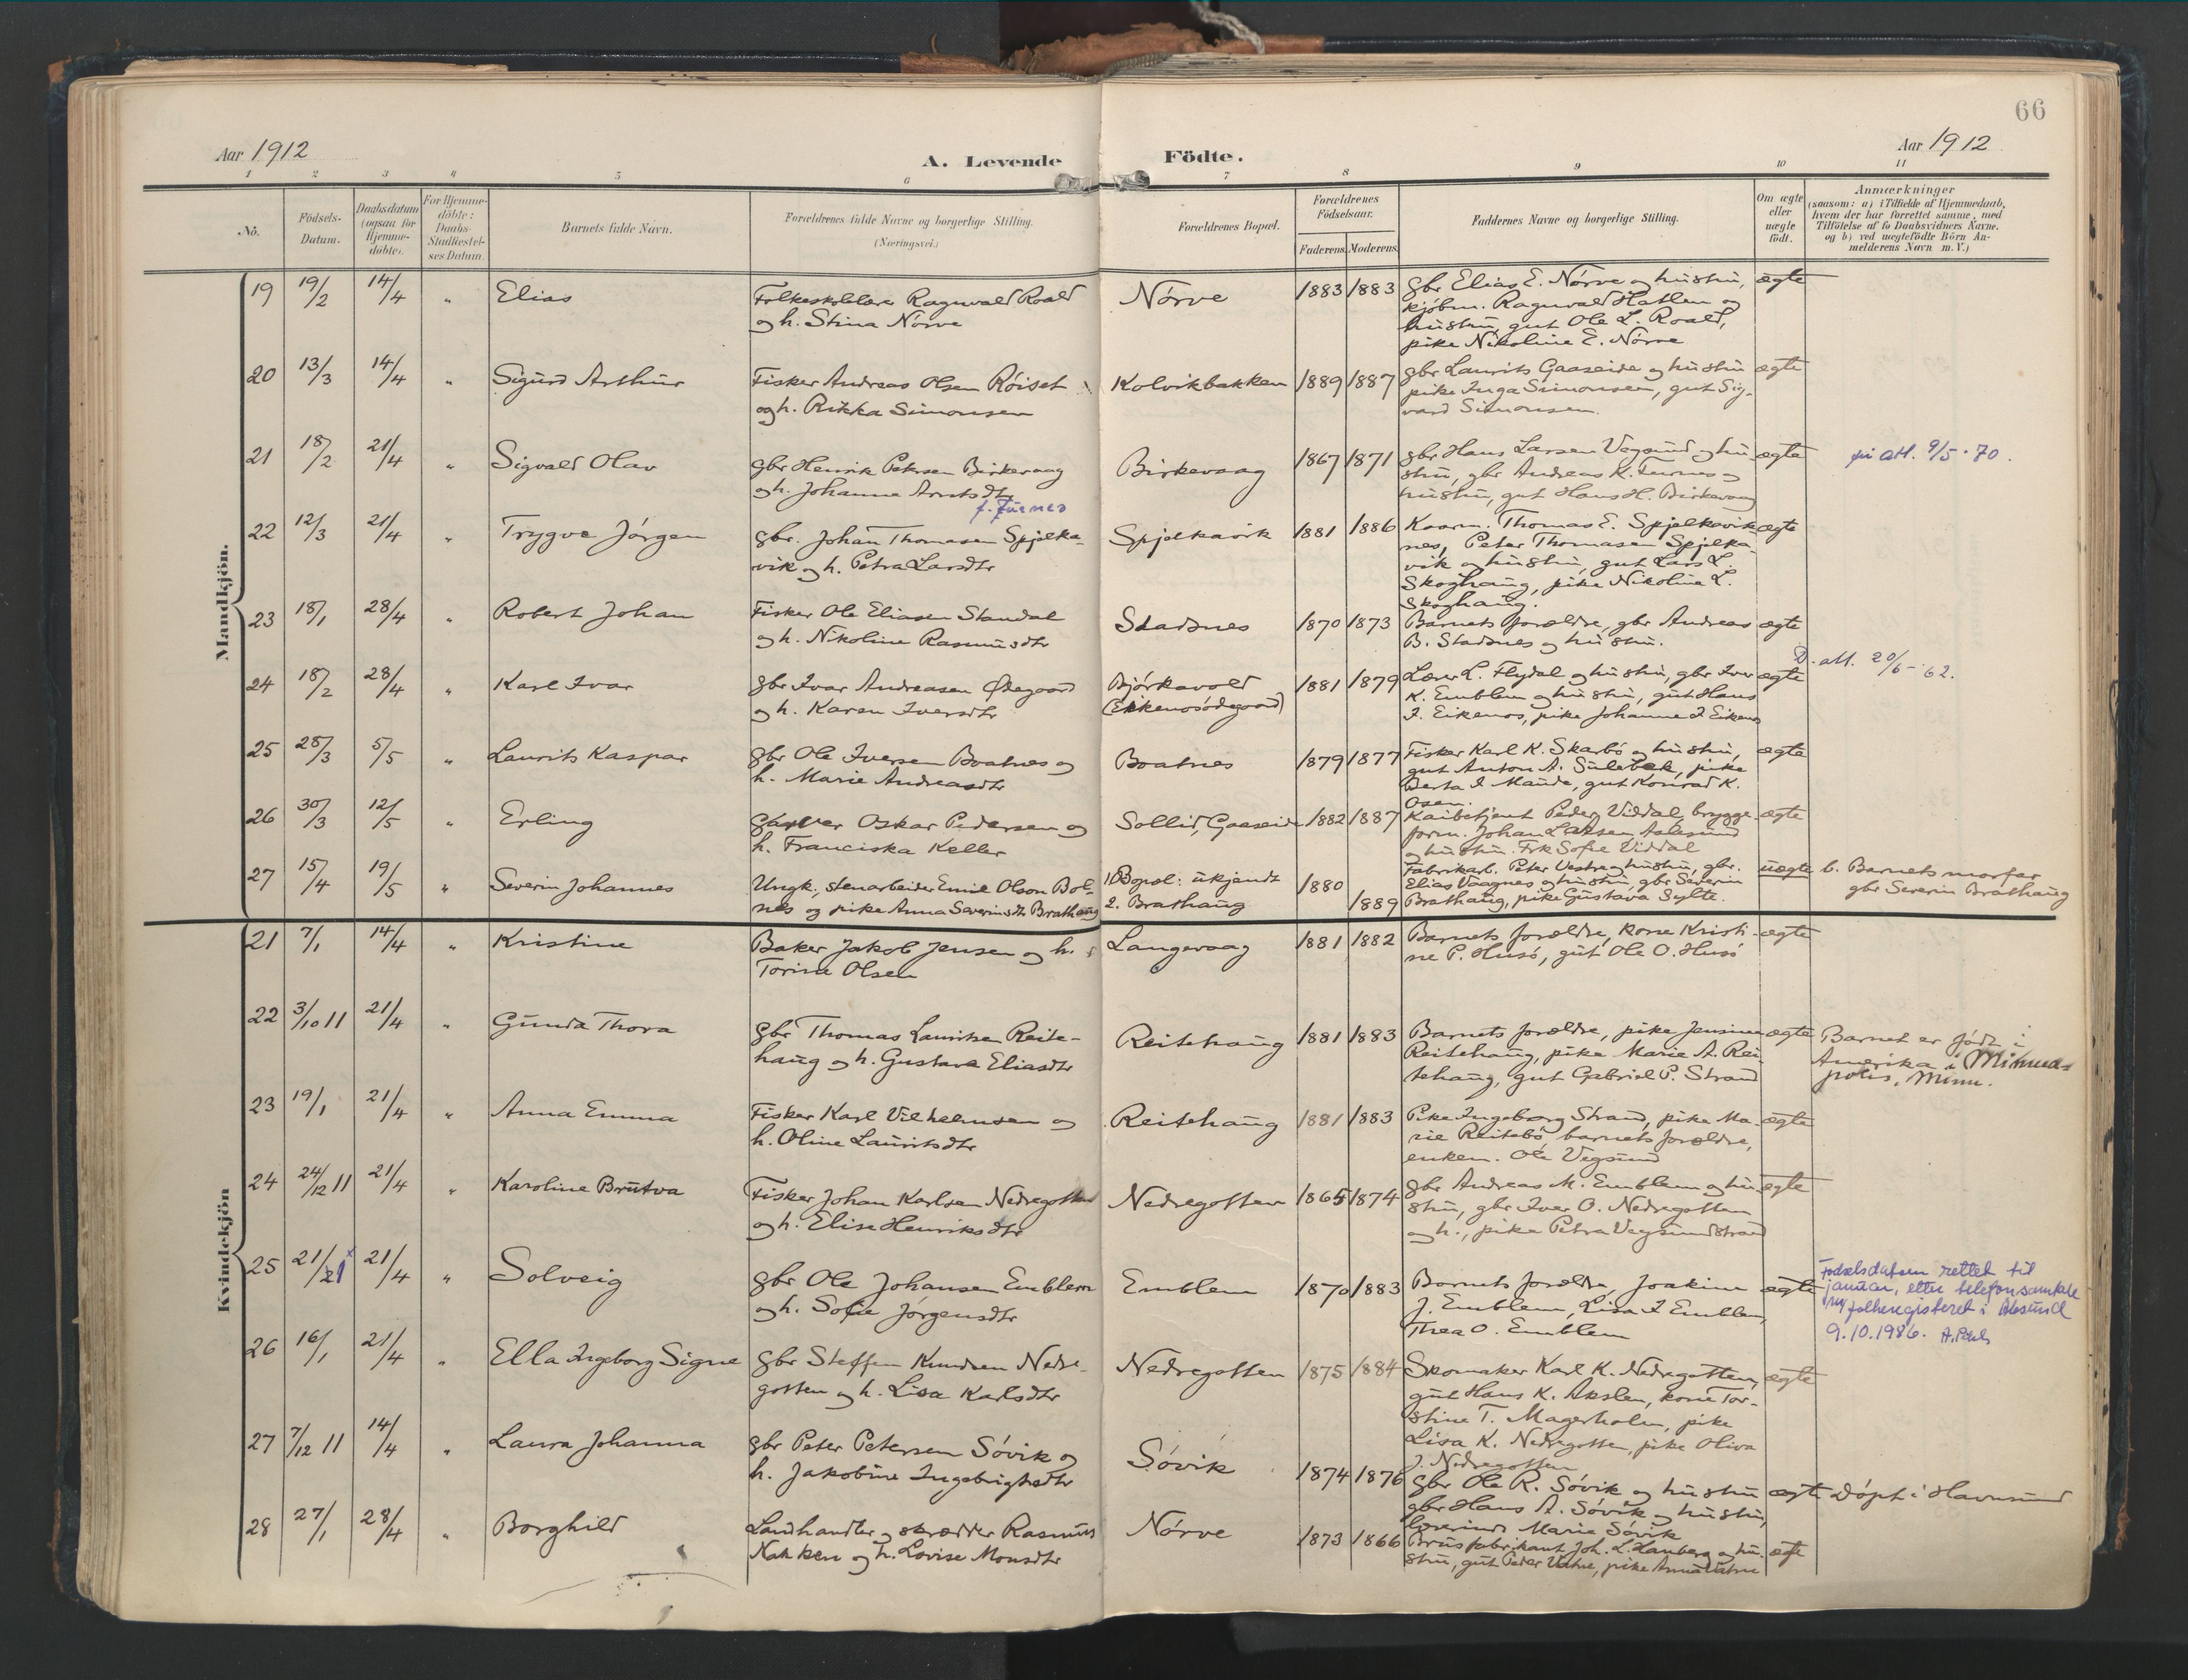 66
Aar 1912
A. Levende Födte.
Aar 1912
1 2 3 4 5 6 7 8 9 10 11
No.
Födsels-
Datum.
Daabsdatum
(ogsaa for
Hjemme-
döbte).
For Hjemme-
döbte:
Daabs-
Stadfæstel-
ses Datum.
Barnets fulde Navn.
Forældrenes fulde Navne og borgerlige Stilling.
(Næringsvei.)
Forældrenes Bopæl.
Forældrenes
Födselsaar.
Faderens. Moderens.
Faddernes Navne og borgerlige Stilling.
Om ægte
eller
uægte
födt.
Anmærkninger
(saasom: a) i Tilfælde af Hjemmedaab,
hvem der har forrettet samme, med
Tilföielse af to Daabsvidners Navne.
og b) ved uægtefödte Börn An-
melderens Navn m. V.)
Mandkjön.
19 19/2 14/4 " Elias
Folkeskolelærer Ragnvald Roald
og h. Stina Nörve
Nörve 1883 1883
gbr Elias E. Nörve og hustru,
kjöbm. Ragnvald Hatlen og
hustru, gut Ole L. Roald,
pike Nikoline E. Nörve
ægte
20 13/3 14/4 " Sigurd Arthur
Fisker Andreas Olsen Röiset
og h. Rikka Simonsen
Kolvikbakken 1889 1887
gbr Laurits Gaaseide og hustru
pike Inga Simonsen, gut Sig-
vard Simonsen.
ægte
21 18/2 21/4 " Sigvald Olav
gbr Henrik Petersen Birkevaag
og h. Johanne Arntsdtr
f. Furnes
Birkevaag 1867 1871
gbr Hans Larsen Vegsund og hu-
stru, gbr Andreas K. Furnes og
hustru, gut Hans H. Birkevaag
ægte
att. 9/5-70.
22 12/3 21/4 " Trygve Jörgen
gbr. Johan Thomasen Spjelka-
vik og h. Petra Larsdtr
Spjelkavik 1881 1886
Kaarm. Thomas E. Spjelkavik-
nes, Peter Thomasen Spjelka-
vik og hustru, gut Lars L.
Skoghaug, pike Nikoline L.
Skoghaug.
ægte
23 18/1 28/4 " Robert Johan
Fisker Ole Eliasen Standal
og h. Nikoline Rasmusdtr
Stadsnes 1870 1873
Barnets forældre, gbr Andreas
B. Stadsnes og hustru.
ægte
24 18/2 28/4 " Karl Ivar
gbr Ivar Andreasen Ødegaard
og h. Karen Iversdtr
Björkavold
(Eikenosödegaard)
1881 1879
Lærer L. Flydal og hustru, gbr Iver
K. Emblem og hustru, gut Hans
I. Eikenos, pike Johanne I Eikenos
ægte
D. att. 20/6-62.
25 28/3 5/5 " Laurits Kaspar
gbr Ole Iversen Boatnes og
h. Marie Andreasdtr
Boatnes 1879 1877
Fisker Karl K. Skarbö og hustru,
gut Anton A. Sulebak, pike
Berta I Mande, gut Konrad K.
Osen.
ægte
26 30/3 12/5 " Erling
Garver Oskar Pedersen og
h. Franciska Keller
Sollid, Gaaseide 1882 1887
Kaibetjent Peder Viddal, brygge-
form. Johan Larsen, Aalesund
og hustru. Frk Sofie Viddal
ægte
27 15/4 19/5 " Severin Johannes
Ungk., stenarbeider Emil Olson Bol-
nes og pike Anna Severinsdtr Brathaug
1) Bopæl: ukjendt
2. Brathaug
1880 1889
Fabrikarb. Peter Vestre og hustru, gbr.
Elias Vaagnes og hustru, gbr Severin
Brathaug, pike Gustava Sylte.
uægte
b. Barnets morfar
gbr Severin Brathaug
Kvindekjön
21 7/1 14/4 " Kristine
Baker Jakob Jensen og h.
Torine Olsen
Langevaag 1881 1882
Barnets forældre, kone Kristi-
ne P. Husö, gut Ole O. Husö
ægte
22 3/10 11 21/4 " Gunda Thora
gbr Thomas Lauritsen Reite-
haug og h. Gustava Eliasdtr
Reitehaug 1881 1883
Barnets forældre, pike Jensine
Reitehaug, pike Marie A. Rei-
tehaug, gut Gabriel P. Strand
ægte
Barnet er födt i
Amerika i Minnea-
polis, Minn.
23 19/1 21/4 " Anna Emma
Fisker Karl Vilhelmsen og
h. Oline Lauritsdtr
Reitehaug 1881 1883
Pike Ingeborg Strand, pike Ma-
rie Reitebö, barnets forældre,
enkem. Ole Vegsund
ægte
24 24/12 11 21/4 " Karoline Brutva
Fisker Johan Karlsen Nedregotten
og h. Elise Henriksdtr
Nedregotten 1865 1874
gbr Andreas M. Emblem og hu-
stru, gbr Iver O. Nedregotten
og h., pike Petra Vegsundstrand
ægte
25 21/1 x 21/4 " Solveig
gbr Ole Johansen Emblem
og h. Sofie Jörgensdtr
Emblem 1870 1883
Barnets forældre, Joakim
J. Emblem, Lisa I Emblem,
Thea O. Emblem
ægte
Fødselsdatoen rettet til
januar, etter telefonsamtale
m/folkeregisteret i Ålesund
9.10.1986.
26 16/1 21/4 " Ella Ingeborg Signe
gbr Steffen Knudsen Nedre-
gotten og h. Lisa Karlsdtr
Nedregotten 1875 1884
Skomaker Karl K. Nedregotten,
gut Hans K. Akslen, kone Tor-
stine T. Magerholm, pike
Lisa K. Nedregotten, pike Oliva
J. Nedregotten
ægte
27 7/12 11 14/4 " Laura Johanna
gbr Peter Petersen Sövik og
h. Jakobine Ingebrigtsdtr
Sövik 1874 1876
gbr Ole R. Sövik og hustru
gbr Hans A. Sövik og hustru,
lærerinde Marie Sövik
ægte
Döpt i Havnsund
28 27/1 28/4 " Borghild
Landhandler og skrædder Rasmus
Nakken og h. Lovise Monsdtr
Nörve 1873 1866
Brusfabrikant Joh. L. Hanberg og hu-
stru, gut Peder Vatne, pike Anna Vatne
ægte